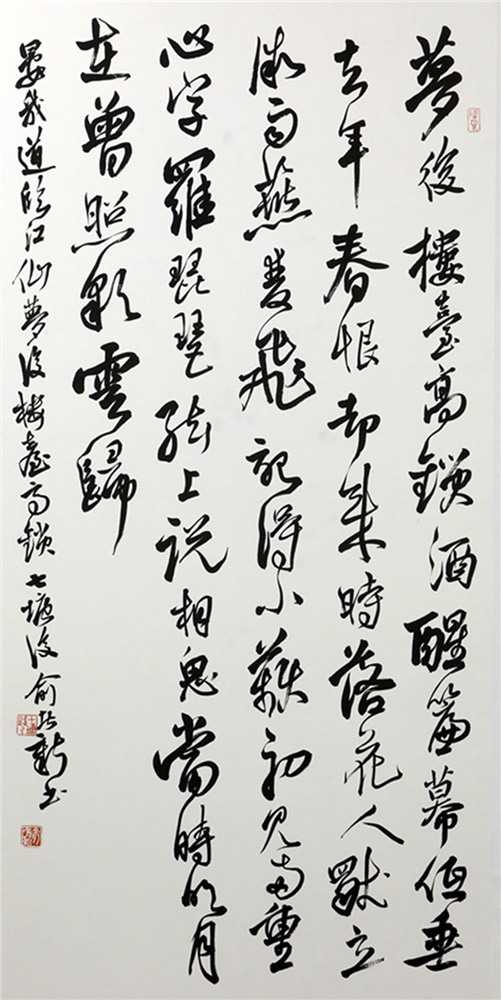 夢後樓臺高鎖酒醒簾幕低垂
去年春恨却來時落花人獨立
微雨燕雙飛記得小蘋初見兩重
心字羅琵琶絃上説相思當時明月
在曾照彩雲歸
晏幾道臨江仙夢後樓臺高鎖七後俞新書